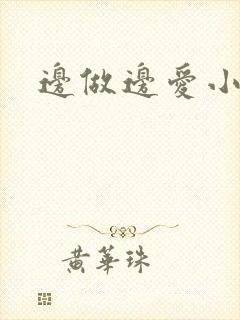 邊做邊愛小
黃華珠